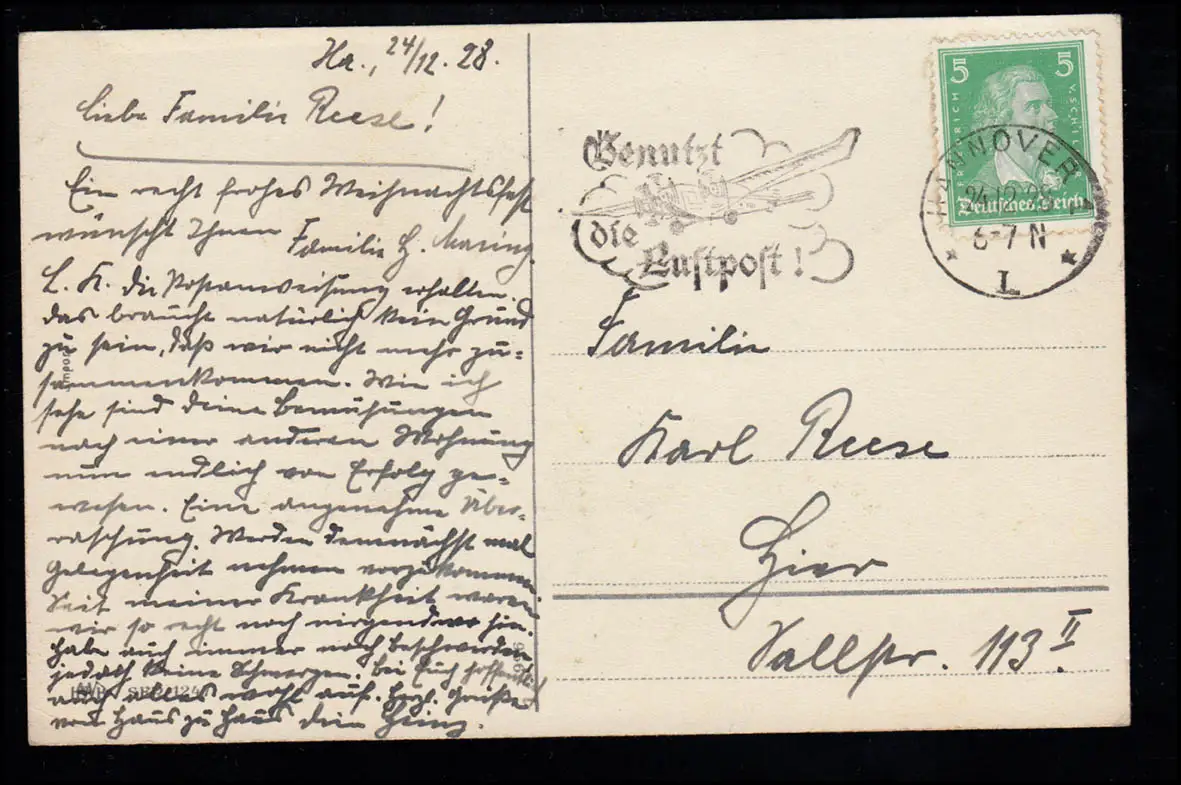 Ha., 24/12. 28.
Liebe Familie Reese!
Ein recht frohes Weihnachtsfest
wünscht Ihnen
Familie H. Maring.
L. K. die Postanweisung erhalten.
das braucht natürlich kein Grund
zu sein, daß wir nicht mehr zu-
sammenkommen. Wie ich
sehe sind deine Bemühungen
nach einer anderen Wohnung
nun endlich von Erfolg ge-
wesen. Eine angenehme Über-
raschung. Werden demnächst mal
Gelegenheit nehmen vorzukommen.
Seit meiner Krankheit waren
wir so recht noch nirgendwo hin.
Habe auch immer noch Beschwerden
jedoch keine Schmerzen. Bei Euch hoffentlich
auch alles wohl auf. Herzl. Grüße
von Haus zu Haus dein Heinz.
Import
Benutzt
die
Luftpost!
5 5
FRIEDRICH V. SCHILLER
Deutsches Reich
HANNOVER
24.12.28
6-7 N
* 1. *
Familie
Karl Reese
Hier
Sallstr. 113 II